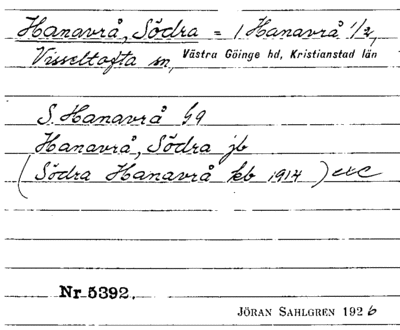 Hanavrå, Södra = 1 Hanavrå 1/2,
Visseltofta sn, Västra Göinge hd, Kristianstad län
S. Hanavrå
Hanavrå, Södra jb
(Södra Hanavrå kb 1914)
Nr 5392.
JÖRAN SAHLGREN 1926